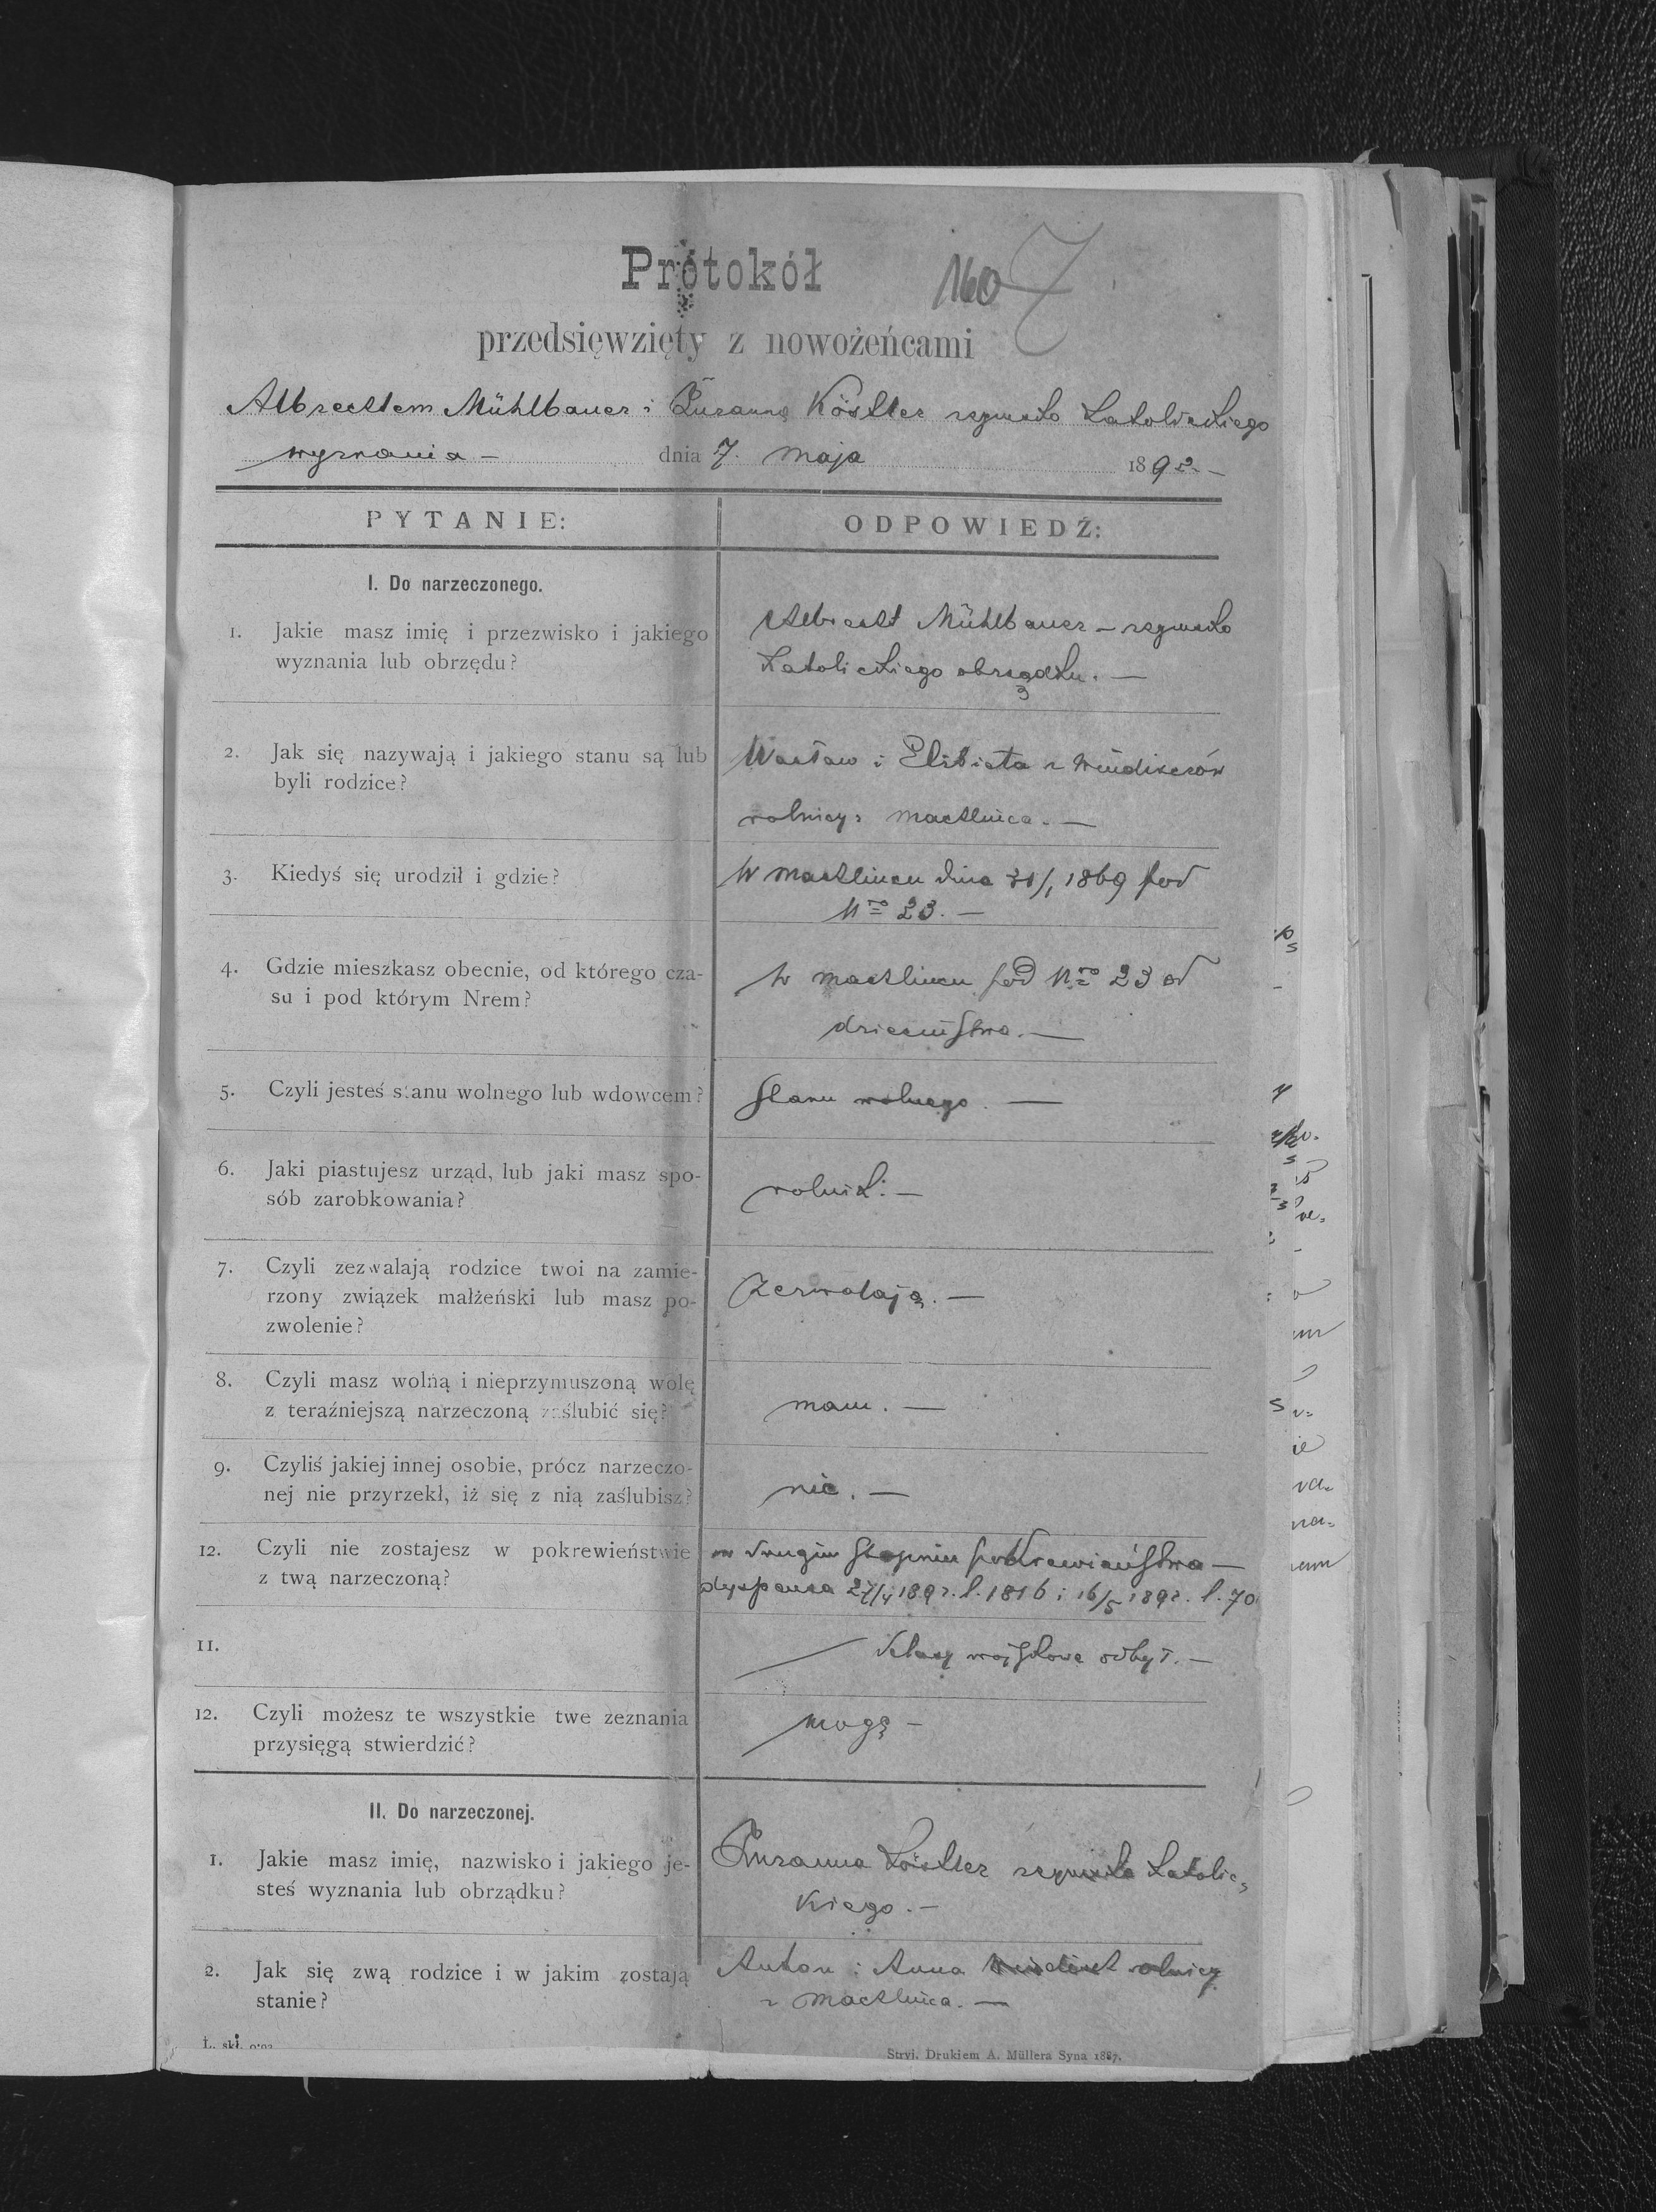 Protokół
160 7
przedsięwzięty z nowożeńcami
Albrechtem Mühlbauer i Zuzanną Köstler rzymsko katolickiego
wyznania – dnia 7. maja 1892. –
PYTANIE:
ODPOWIEDŹ:
I. Do narzeczonego.
1. Jakie masz imię i przezwisko i jakiego
wyznania lub obrzędu?
Albrecht Mühlbauer – rzymsko
katolickiego obrządku. —
2. Jak się nazywają i jakiego stanu są lub
byli rodzice?
Wacław i Elżbieta z
rolnicy z Machlińca. —
3. Kiedyś się urodził i gdzie?
W Machlińcu dnia /1 1869 pod
Nro 23. —
4. Gdzie mieszkasz obecnie, od którego cza-
su i pod którym Nrem?
w Machlińcu pod Nro 23 od
dzieciństwa. —
5. Czyli jesteś stanu wolnego lub wdowcem?
stanu wolnego. —
6. Jaki piastujesz urząd, lub jaki masz spo-
sób zarobkowania?
rolnik. —
7. Czyli zezwalają rodzice twoi na zamie-
rzony związek małżeński lub masz po-
zwolenie?
Zezwalają. —
8. Czyli masz wolną i nieprzymuszoną wolę
z teraźniejszą narzeczoną zaślubić się?
mam. —
9. Czyliś jakiej innej osobie, prócz narzeczo-
nej nie przyrzekł, iż się z nią zaślubisz?
nie. —
12. Czyli nie zostajesz w pokrewieństwie
z twą narzeczoną?
w drugim stopniu pokrewieństwa —
dyspensa 27/4 1892. l. 1816 i 16/5 1892. l. 70
11.
klasy wojskowe odbył. —
12. Czyli możesz te wszystkie twe zeznania
przysięgą stwierdzić?
mogę –
II. Do narzeczonej.
1. Jakie masz imię, nazwisko i jakiego je-
steś wyznania lub obrządku?
Zuzanna Köstler rzymsko katolic=
kiego. –
2. Jak się zwą rodzice i w jakim zostają
stanie?
Anton i Anna rolnicy
z Machlińca. —
Ł. skł.
Stryj. Drukiem A. Müllera Syna 1887.